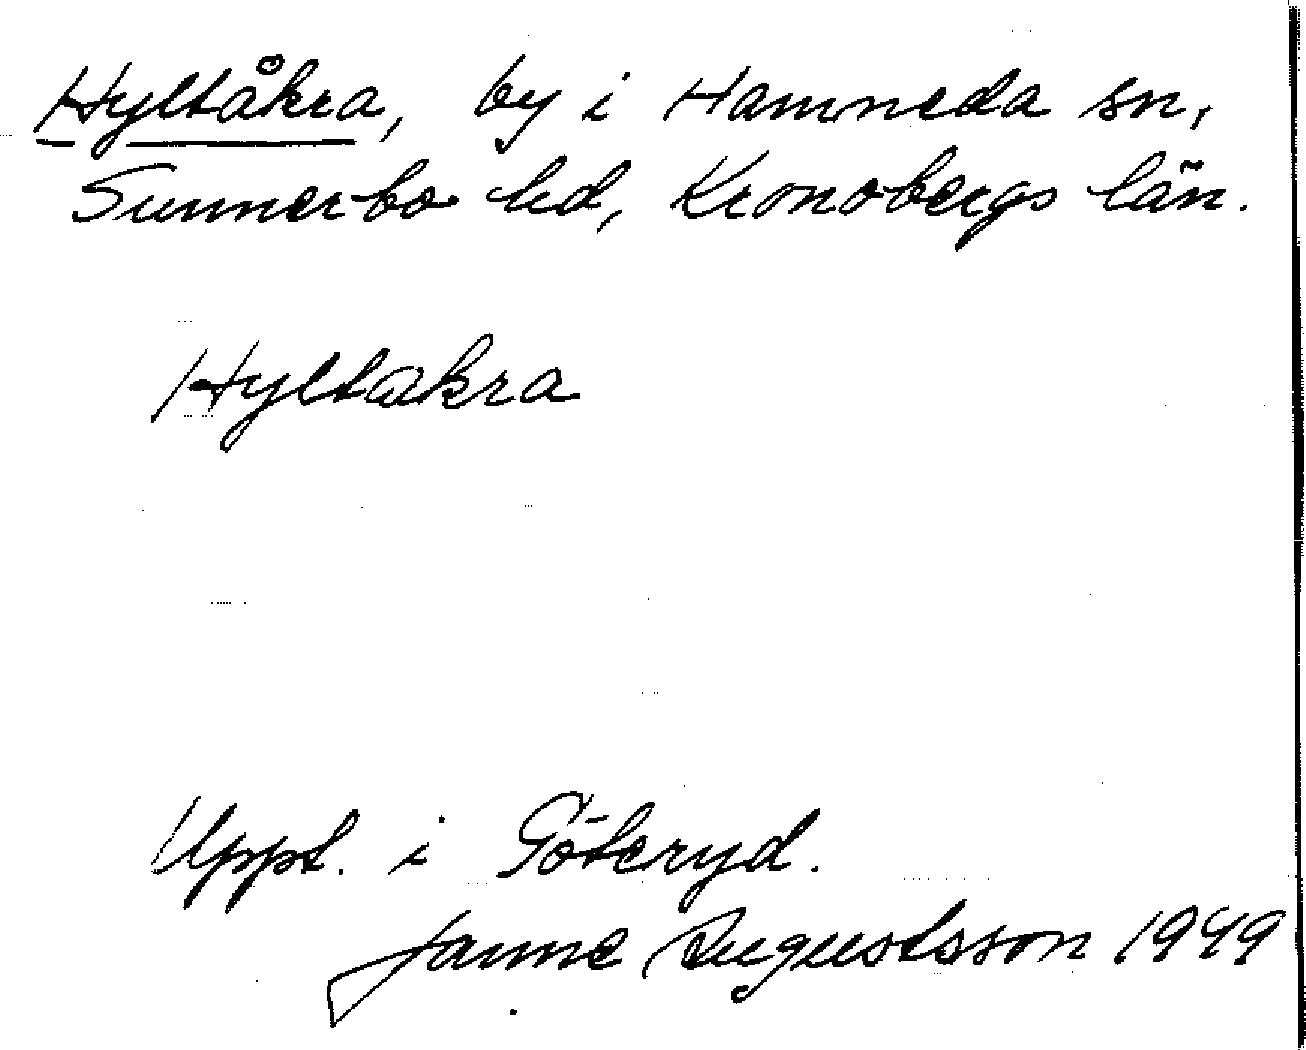 Hyltåkra, by i Hamneda sn,
Sunnerbo hd, Kronobergs län.
Hyltakra
Uppt. i Göteryd.
Janne Augustsson 1949